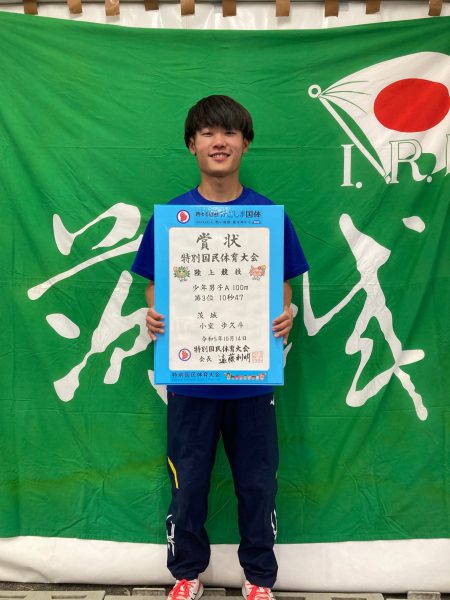 I.R.
茨城
賞状
特別国民体育大会
陸上競技
少年男子A 100m
第3位 10秒47
茨城
小室 歩久斗
令和5年10月14日
特別国民体育大会
会長 遠藤利明
特別国民体育大会